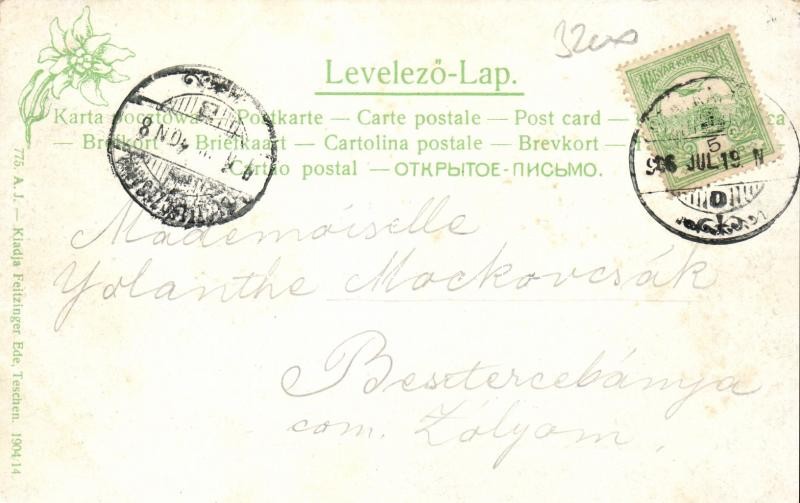 32
Levelező-Lap.
Karta pocztowa — Postkarte — Carte postale — Post card —
— Brefkort — Briefkaart — Cartolina postale — Brevkort —
postal — ОТКРЫТОЕ-ПИСЬМО.
MAGYAR KIR. POSTA
5
906 JUL 19 N
D
Mademoiselle
Yolanthe Mockovcsák
Besztercebánya
com. Zólyom.
775. A. J. — Kiadja Feitzinger Ede, Teschen. 1904/14